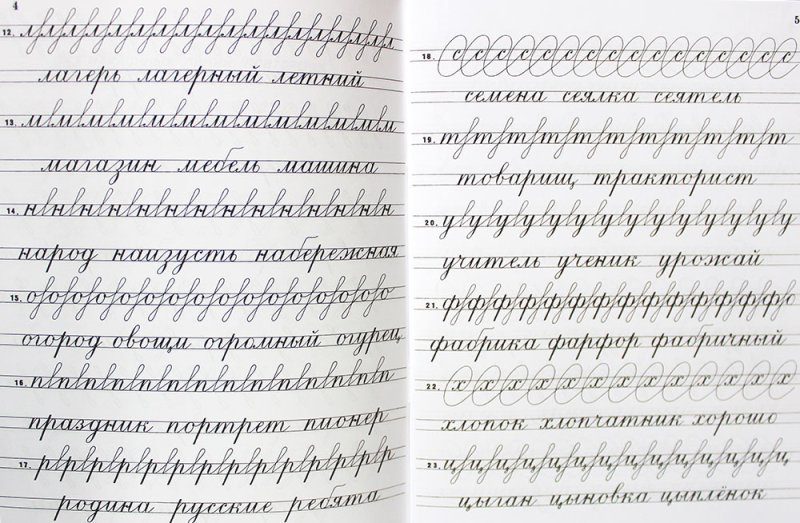 4
12. л л л л л л л л л л л л л л л л л
лагерь лагерный летний
13. м м м м м м м м м м м м м
магазин мебель машина
14. н н н н н н н н н н н н н н
народ наизусть набережная
15. о о о о о о о о о о о о о о о о о
огород овощи огромный огурец
16. п п п п п п п п п п п п п п
праздник портрет пионер
17. р р р р р р р р р р р р р р р р р
родина русские ребята
5
18. с с с с с с с с с с с с с с с с
семена сеялка сеятель
19. т т т т т т т т т т т т т
товарищ тракторист
20. у у у у у у у у у у у у у у у у
учитель ученик урожай
21. ф ф ф ф ф ф ф ф ф ф ф ф ф ф ф ф
фабрика фарфор фабричный
22. х х х х х х х х х х х х х
хлопок хлопчатник хорошо
23. ц ц ц ц ц ц ц ц ц ц ц ц ц ц ц ц
цыган цыновка цыплёнок